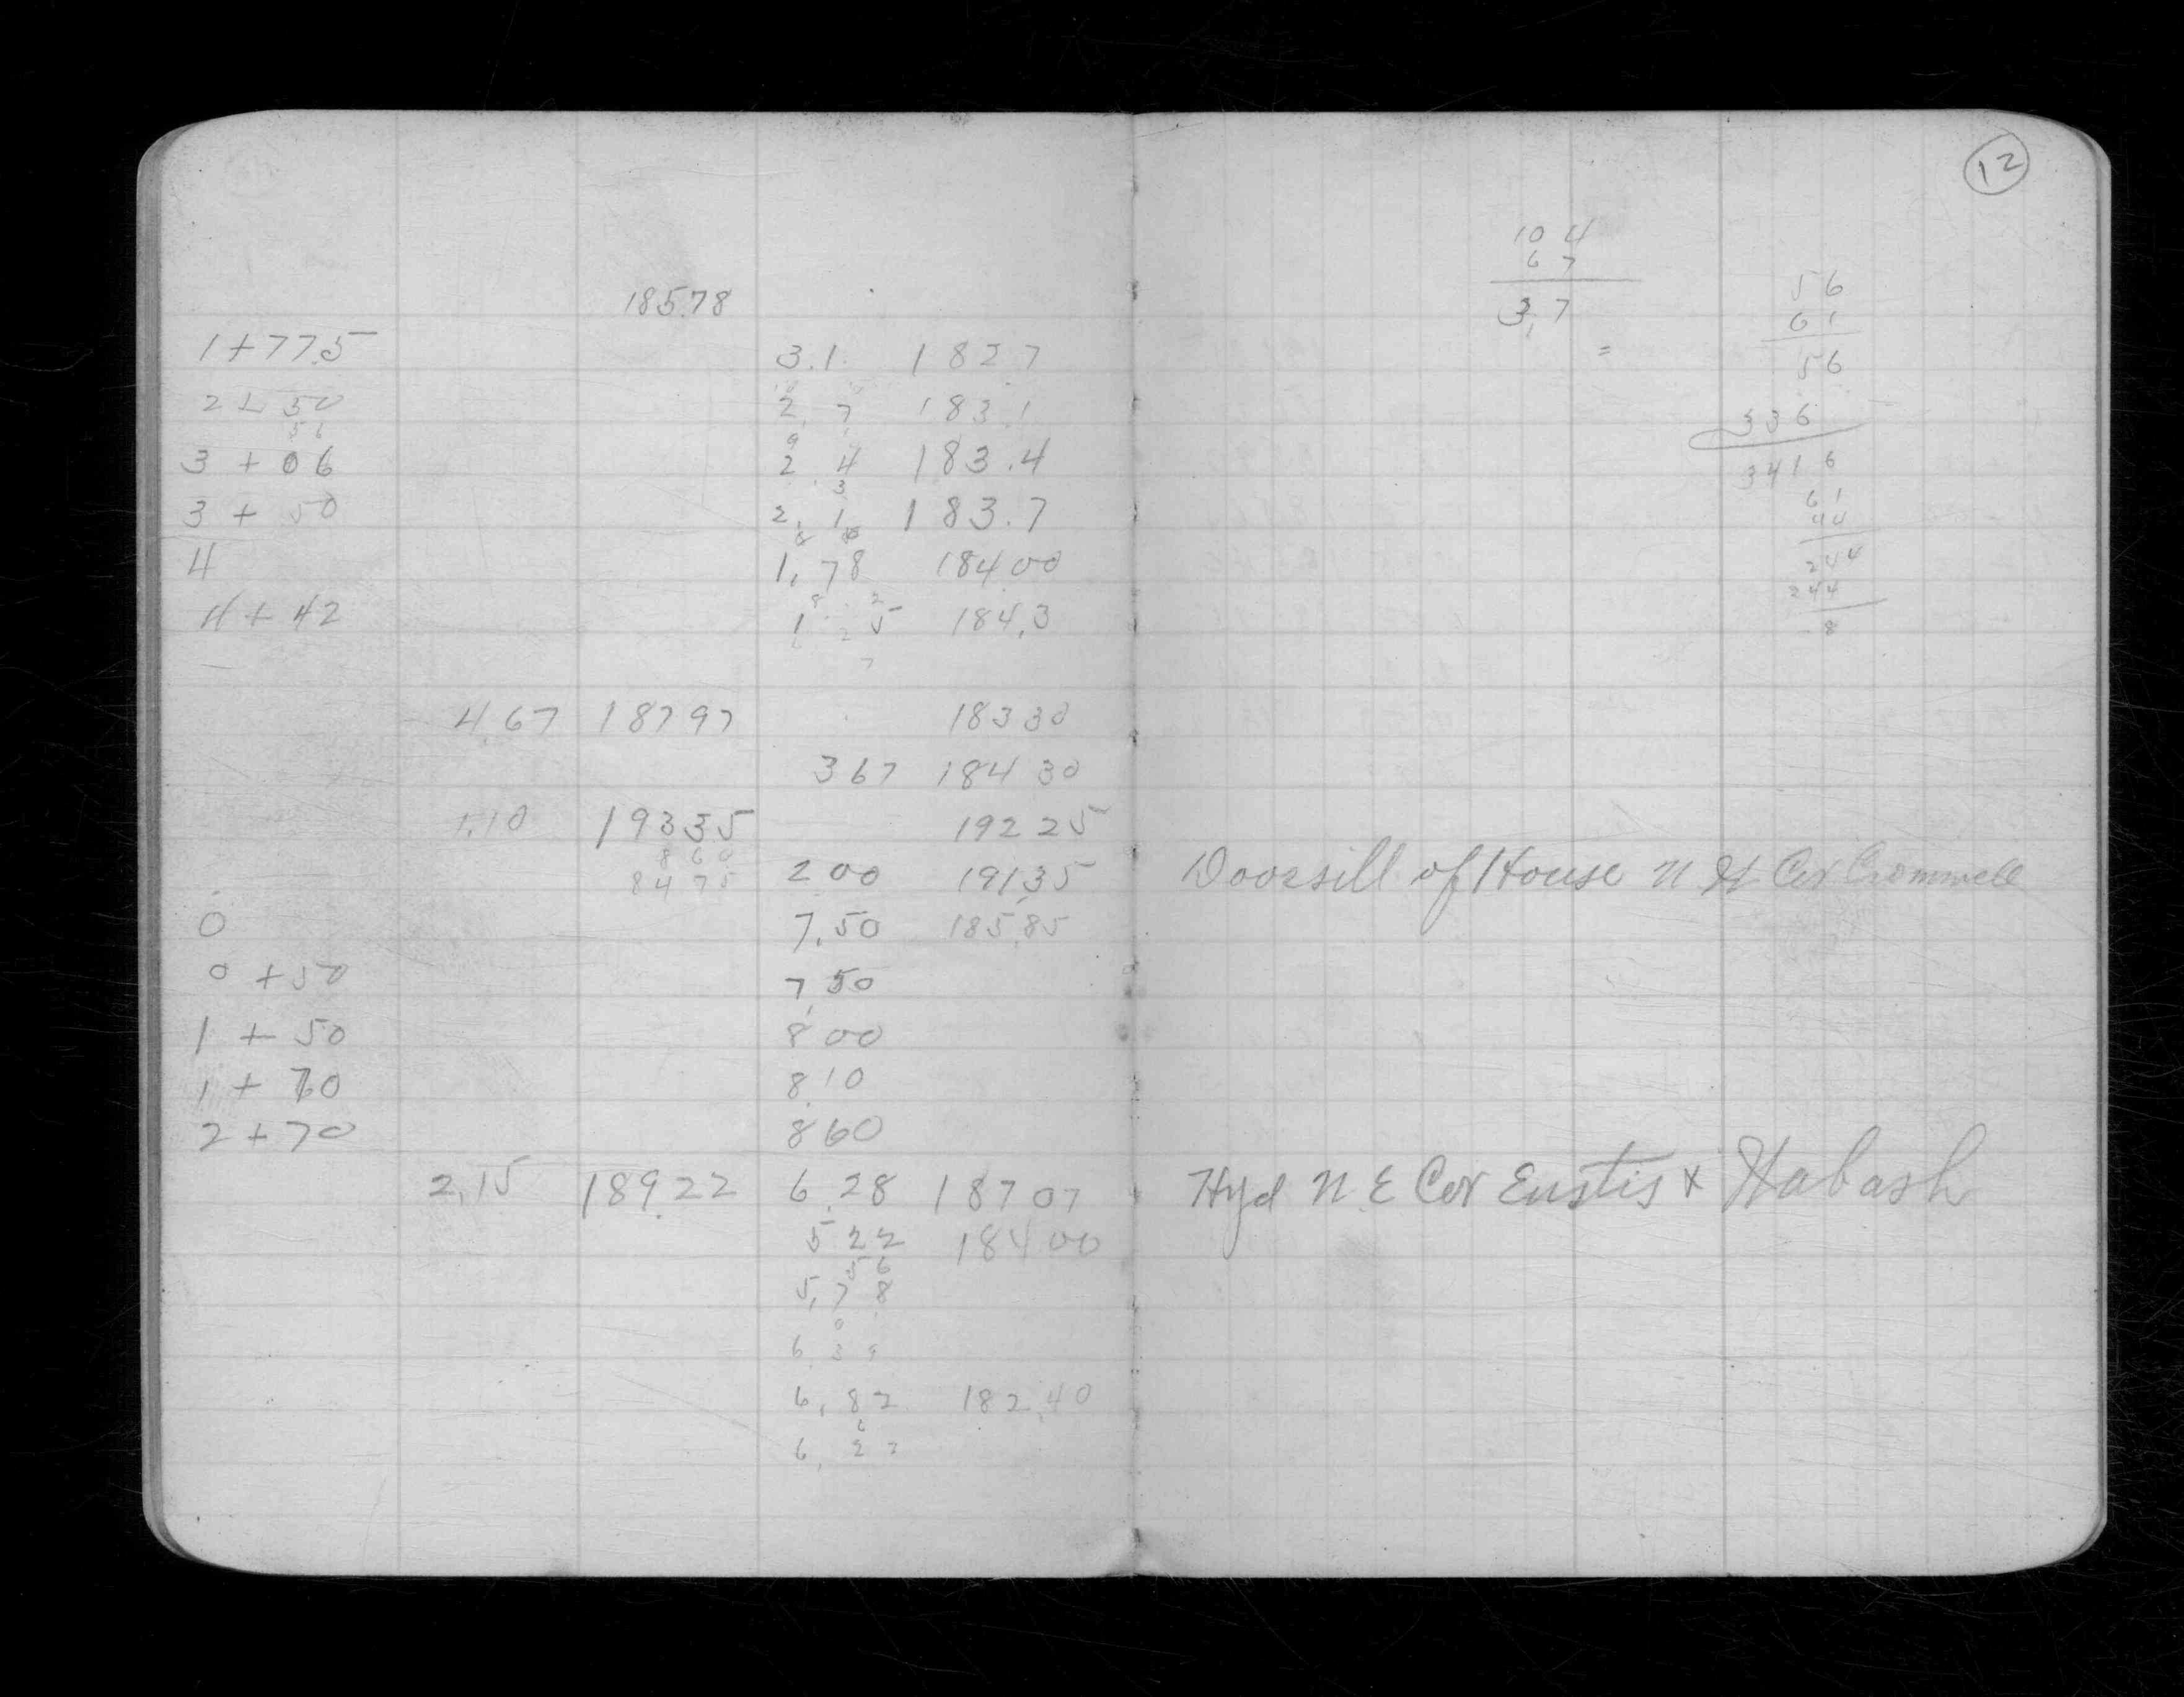 12
185.78
1+77.5 3.1 182.7
2+50 2.7 183.1
56
3+06 2.4 183.4
3+50 2.1 183.7
4 1.78 184.00
4+42 1.25 184.3
4.67 187.97 183.30
3.67 184.30
1.10 193.35 192.25
8 60
84 75 2.00 191.35
0 7.50 185.85
0+50 7.50
1+50 8.00
1+70 8.10
2+70 8.60
2.15 189.22 6.28 187.07
5.22 184.00
5.78
6 39
6.82 182.40
10 4
6 7
3.7
=
56
61
56
336
3416
61
44
244
244
8
Doorsill of House N W Cor Cromwell
Hyd N.E Cor Eustis & Wabash